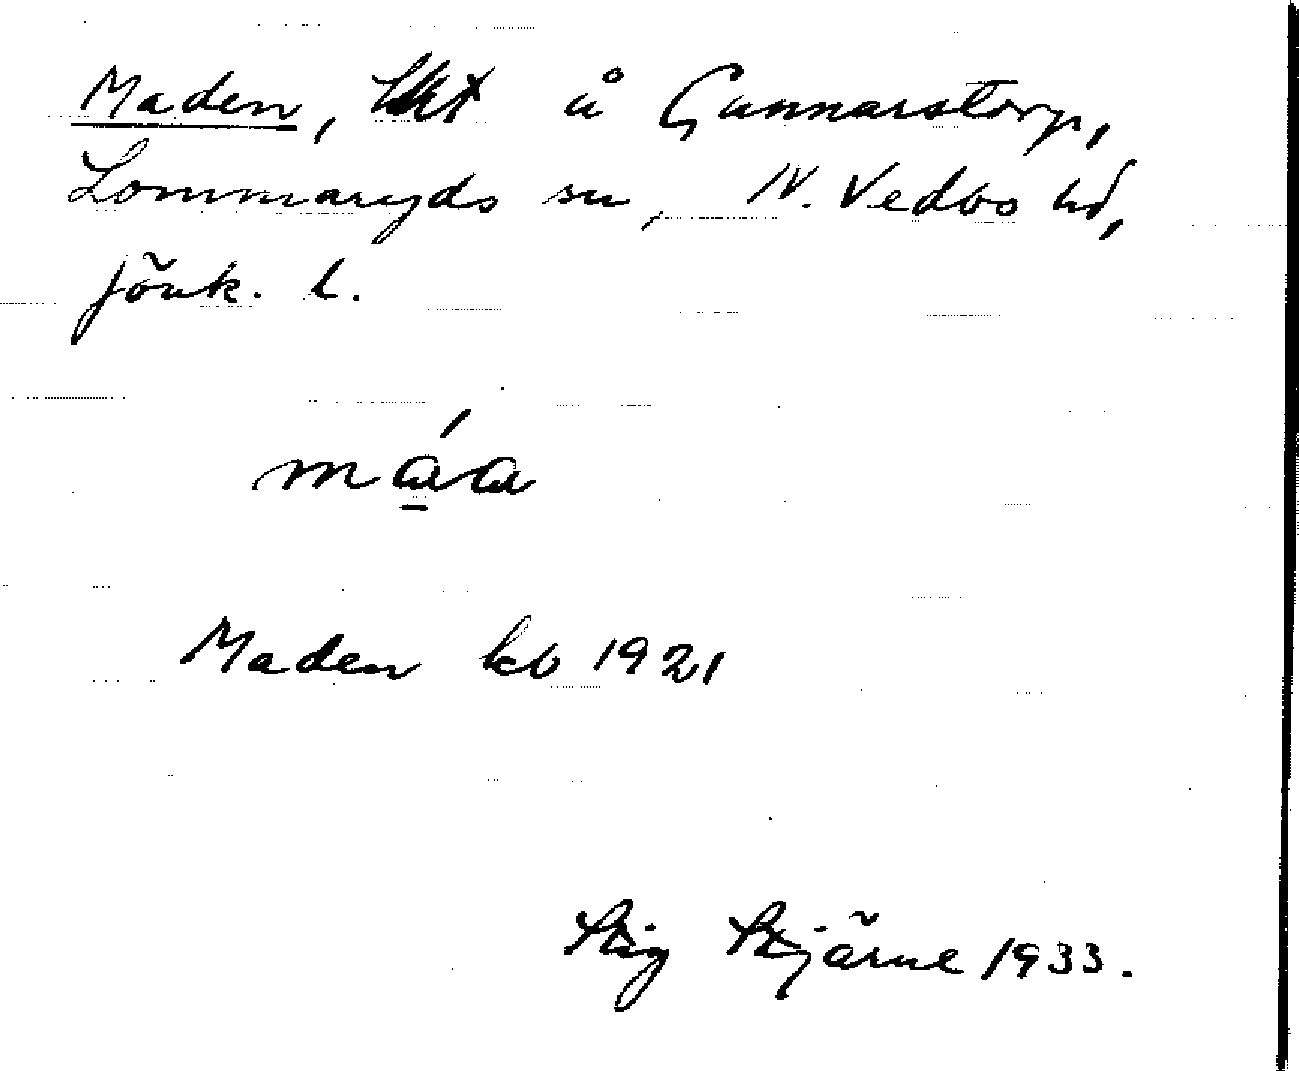 Maden, å Gunnarstorp,
Lommaryds sn, N. Vedbo hd,
Jönk. l.
máa
Maden kb 1921
Stig Stjärne 1933.